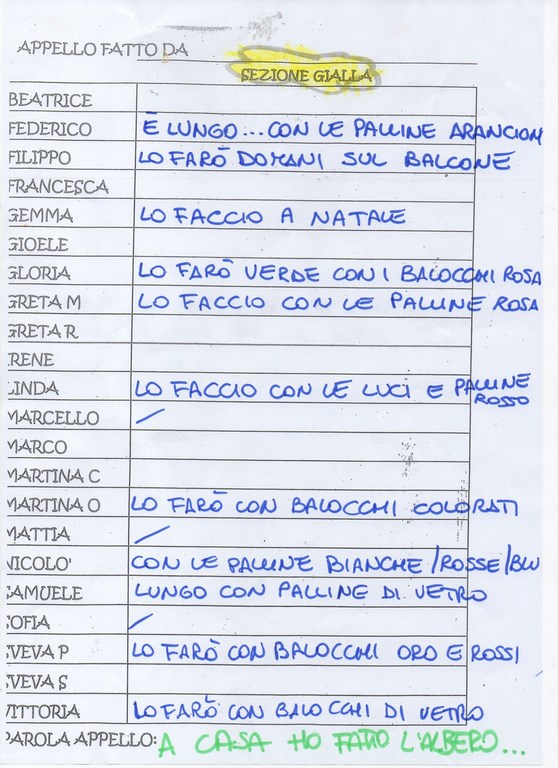 APPELLO FATTO DA
SEZIONE GIALLA
BEATRICE
FEDERICO È LUNGO... CON LE PALLINE ARANCION
FILIPPO LO FARÒ DOMANI SUL BALCONE
FRANCESCA
GEMMA LO FACCIO A NATALE
GIOELE
GLORIA LO FARÒ VERDE CON I BALOCCHI ROSA
GRETA M LO FACCIO CON LE PALLINE ROSA
GRETA R
IRENE
LINDA LO FACCIO CON LE LUCI E PALLINE
ROSSO
MARCELLO /
MARCO
MARTINA C
MARTINA O LO FARÒ CON BALOCCHI COLORATI
MATTIA /
NICOLO' CON LE PALLINE BIANCHE/ROSSE/BLU
SAMUELE LUNGO CON PALLINE DI VETRO
SOFIA /
SVEVA P LO FARÒ CON BALOCCHI ORO E ROSSI
SVEVA S
VITTORIA LO FARÒ CON BALOCCHI DI VETRO
PAROLA APPELLO: A CASA HO FATTO L'ALBERO...